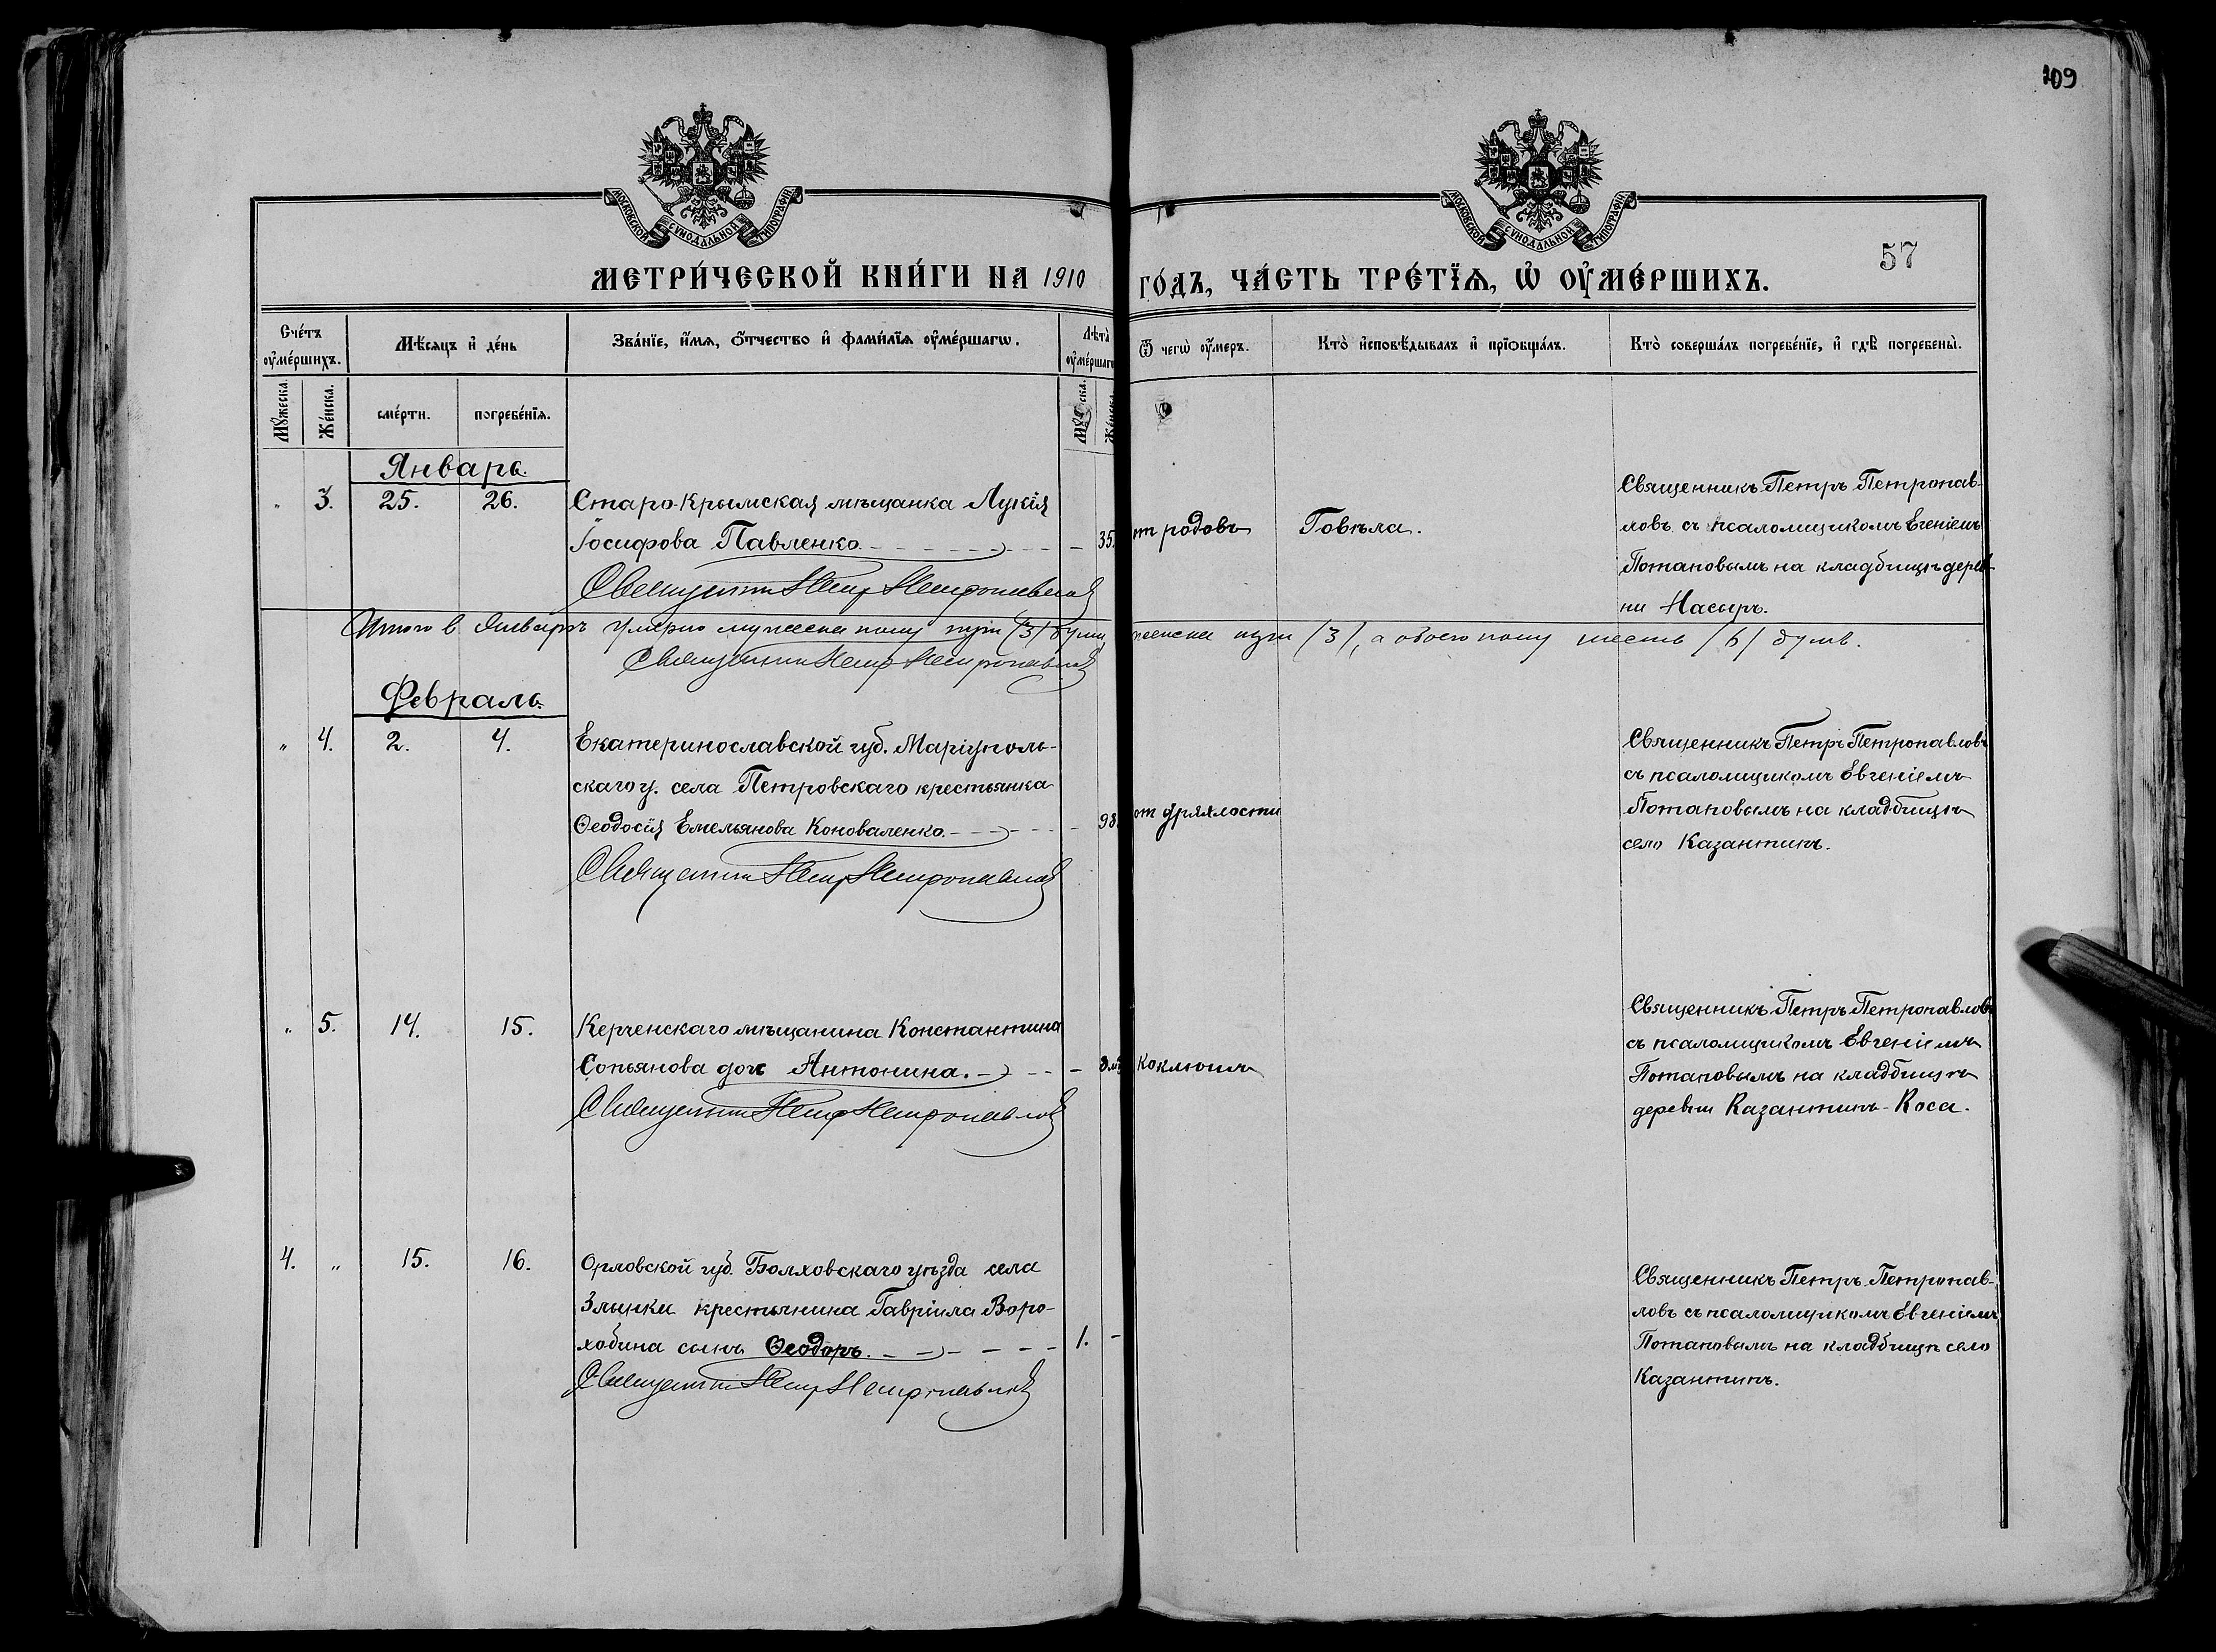 109
МОСКОВСКОЙ СѴНОДАЛЬНОЙ ТИПОГРАФІИ
МОСКОВСКОЙ СѴНОДАЛЬНОЙ ТИПОГРАФІИ
57
МЕТРИ́ЧЕСКОЙ КНИ́ГИ НА 1910 ГО́ДЪ, ЧА́СТЬ ТРЕ́ТЇѦ, Ѡ҆ ОУ҆МЕ́РШИХЪ.
Сче́тъ оу҆ме́ршихъ.
Мѣ́сѧцъ и҆ де́нь
Зва́нїе, и҆́мѧ, ѻ҆́тчество и҆ фами́лїѧ оу҆ме́ршагѡ.
Лѣ̀та оу҆ме́ршагѡ
Ѿ чегѡ̀ оу҆́меръ.
Кто̀ и҆сповѣ́дывалъ и҆ прїѻбща́лъ.
Кто̀ соверша́лъ погребе́нїе, и҆ гдѣ̀ погребены̀.
Мꙋ́жеска.
Же́нска.
сме́рти.
погребе́нїѧ.
Январь.
" 3. 25. 26. Старо-Крымская мѣщанка Лукія
Іосифова Павленко. 35. от родовъ Говѣла.
Священникъ Петръ Петропавловъ
Священникъ Петръ Петропав-
ловъ съ псаломщикомъ Евгеніемъ
Потаповымъ на кладбищѣ дерев-
ни Насыръ.
Итого в Январѣ умерло мужеска полу три (3) душ, женска три (3), а обоего полу шесть (6) душъ.
Священникъ Петръ Петропавловъ
Февраль.
" 4. 2. 4. Екатеринославской губ. Маріуполь-
скаго у. села Петровскаго крестьянка
Ѳеодосія Емельянова Коноваленко. 98. от дряхлости
Священникъ Петръ Петропавловъ
Священникъ Петръ Петропавловъ
съ псаломщикомъ Евгеніемъ
Потаповымъ на кладбищѣ
село Казантипъ.
" 5. 14. 15. Керченскаго мѣщанина Константина
Сопьянова дочь Антонина. коклюшъ
Священникъ Петръ Петропавловъ
Священникъ Петръ Петропавловъ
съ псаломщикомъ Евгеніемъ
Потаповымъ на кладбищѣ
деревни Казантипъ-Коса.
4. " 15. 16. Орловской губ. Болховскаго уѣзда села
Злынки крестьянина Гавріила Воро-
хобина сынъ Ѳеодоръ. 1. -
Священникъ Петръ Петропавловъ
Священникъ Петръ Петропав-
ловъ съ псаломщикомъ Евгеніемъ
Потаповымъ на кладбищѣ село
Казантипъ.